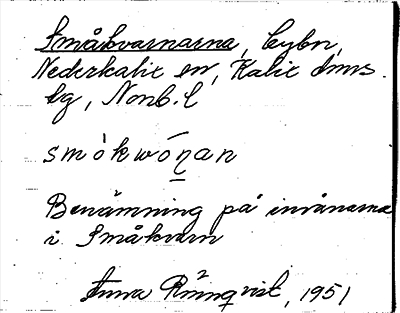 Småkvarnarna, bybn,
Nederkalix sn, Kalix dms
bg, Nonb.l
smòkwó̱ṇan
Benämning på invånarna
i Småkvarn
Anna Rönnqvist, 1951